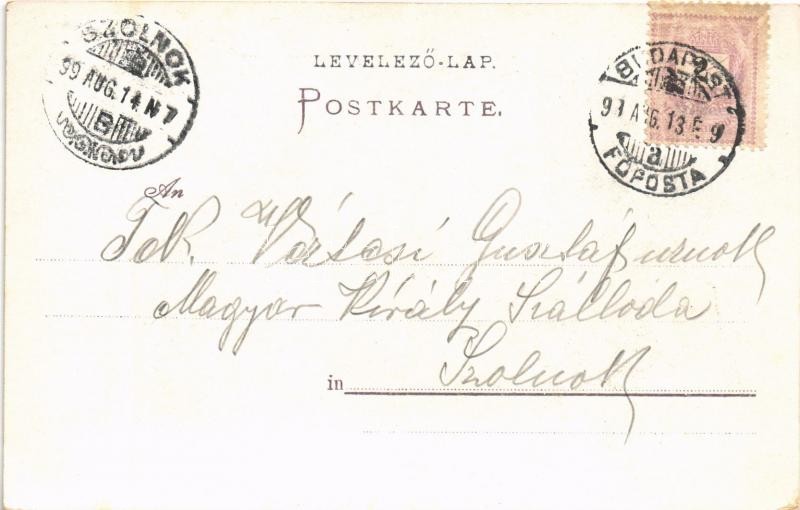 SZOLNOK
99 AUG. 14. N 7
B
LEVELEZŐ-LAP.
POSTKARTE.
BUDAPEST 2
99 AUG. 13. E 9
a
FŐPOSTA
An
Tek. Gusztáf urnak
Magyar Király Szálloda
in Szolnok